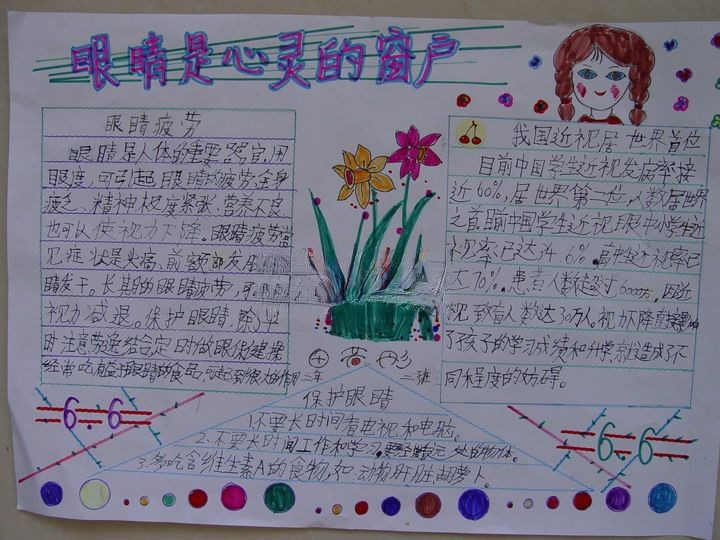 眼睛是心灵的窗户
眼睛疲劳
眼睛是人体的重要器官,用
眼过度,可引起眼睛的疲劳全身
疲乏、精神极度紧张、营养不良
也可以使视力下降。眼睛疲劳常
见症状是头痛、前额部发
睛发干。长期的眼睛疲劳,可
视力减退。保护眼睛,除平
时注意劳逸结合定时做眼保健操
经常吃有益于眼睛的食品,可起到很大的作用
我国近视居世界首位
目前中国学生近视发病率接
近60%,居世界第二位,人数居世界
之首目前中国学生近视眼中小学生近
视率已达 6%.高中生近视率已
达70%.患者人数超过6000万,因近
视致盲人数达30万人.视力下降直接影响
了孩子的学习成绩和升学,就造成了不
同程度的妨碍。
三年 二班
保护眼睛
1.不要长时间看电视和电脑。
2.不要长时间工作和学习,要望远处的物体。
3.多吃含维生素A的食物,如:动物肝脏胡萝卜。
6.6
6.6